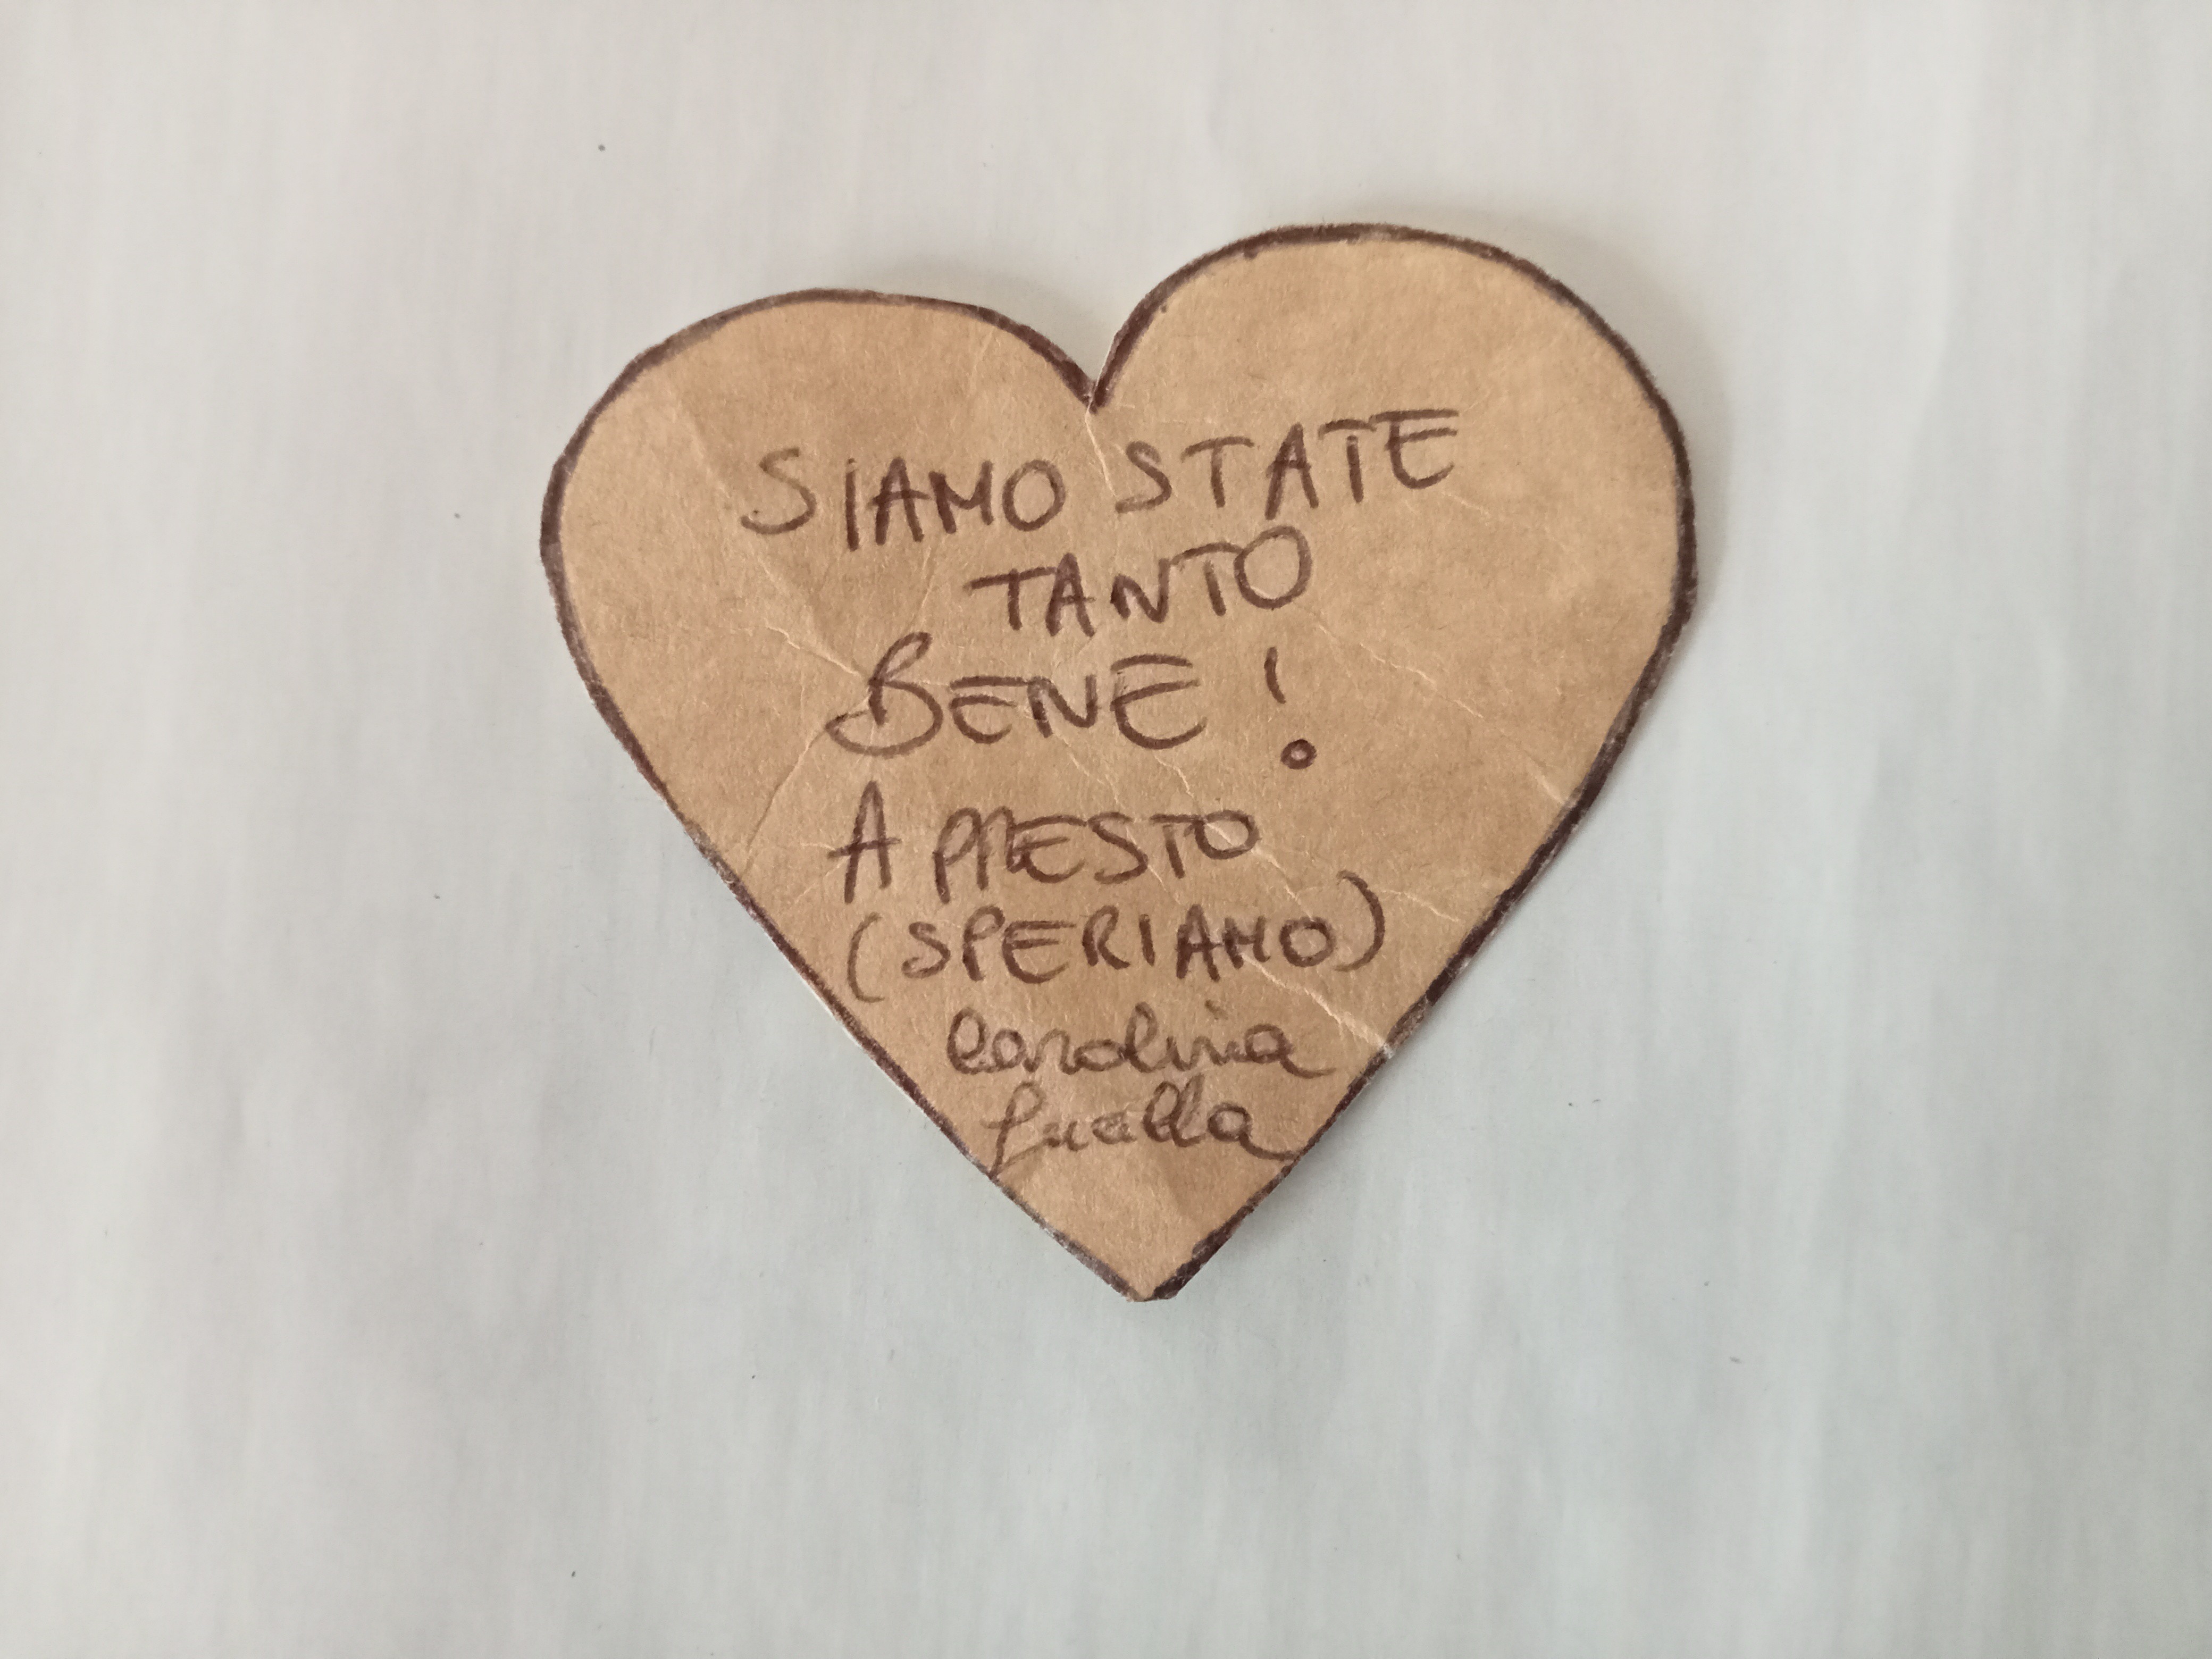 SIAMO STATE
TANTO
BENE!
A PRESTO
(SPERIAMO)
Carolina
Luella